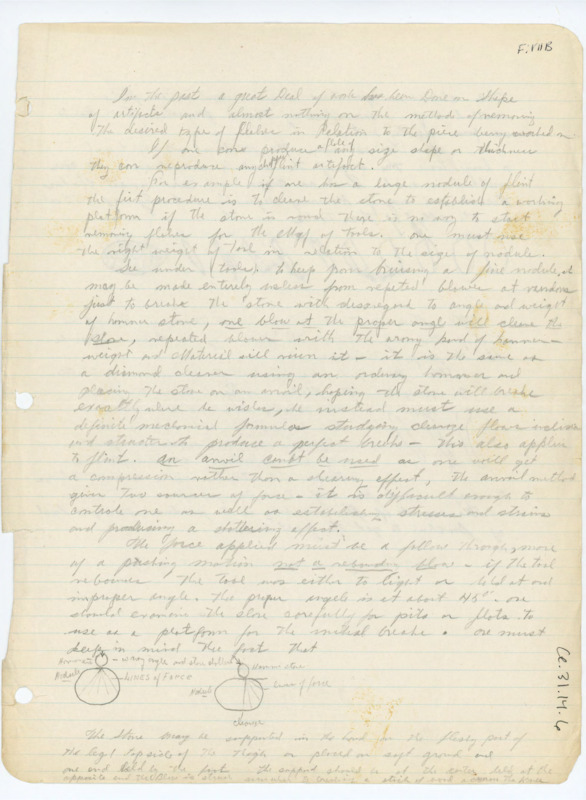 F. VII B
In the past a great Deal of work has been Done on Shape
of artifacts and almost nothing on the method of removing
The desired type of flake in Relation to the piece being worked on
If one can produce a flake of any size shape or thickness
they can reproduce any flint artifact.
For example if one has a large nodule of flint
the first procedure is to cleave the stone to establish a working
platform if the stone is round there is no way to start
removing flakes for the of tools. one must use
the right weight of tool in relation to the size of nodule.
to keep from bruising a fine nodule, it
may be made entirely useless from repeted blows at random
just to break the stone with disregard to angle and weight
of hammer stone, one blow at the proper angle will cleave the
stone, repeated blows with the wrong kind of hammer –
weight and Material will ruin it – it is the same as
a diamond cleaver using an ordinary hammer and
placing the stone on an anvil, hoping the stone will break
exactly where he wishes, he instead must use a
definite mechanical formula studying cleavage flaws
and to produce a perfect break – This also applies
to flint. an anvil cannot be used as one will get
a compression rather than a shearing effect, The anvil method
gives two sources of force – it is difficult enough to
controle one as well as establishing stresses and strains
and producing a shattering effect.
The force applied must be a follow through, more
of a pushing motion not a rebounding blow – if the tool
rebounds The tool was either to light or held at an
improper angle. The proper angle is at about 45°. one
should examine the stone carefully for pits or flats to
use as a platform for the initial break. One must
keep in mind the fact that
wrong angle and
Lines of Force
Nodule
Hammer stone
Lines of force
Nodule
cleavage
The stone may be supported in the hand on the fleshy part of
the leg top side of the thigh or placed on soft ground and
one end held by the foot The support should be at the center held at the
opposite end
Ce.31.14.6